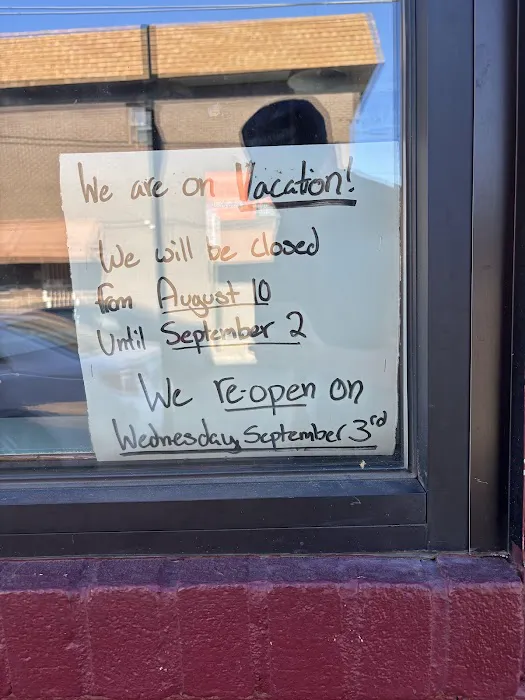 We are on Vacation!
We will be closed
from August 10
Until September 2
We re-open on
Wednesday, September 3rd